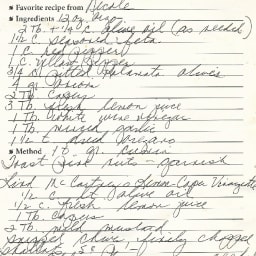 ■ Favorite recipe from Nicole
■ Ingredients 12 oz orzo
2 Tb. + 1/4 C. olive oil (as needed)
1 1/2 C. seasoned feta
1 C. red pepper
1 C. yellow pepper
3/4 C. pitted Kalamata olives
4 gr. onion
2 Tb. capers
3 Tb. fresh lemon juice
1 Tb. white wine vinegar
1 Tb. minced garlic
1 1/2 t. dried oregano
■ Method 1 t. gr. cumin
Toast pine nuts - garnish
Linda McCartney's Lemon-Caper Vinaigrette
1/2 C. lt olive oil
1/2 C. fresh lemon juice
1 Tb. capers
2 Tb. mild mustard
snipped chives, finely chopped
shallots